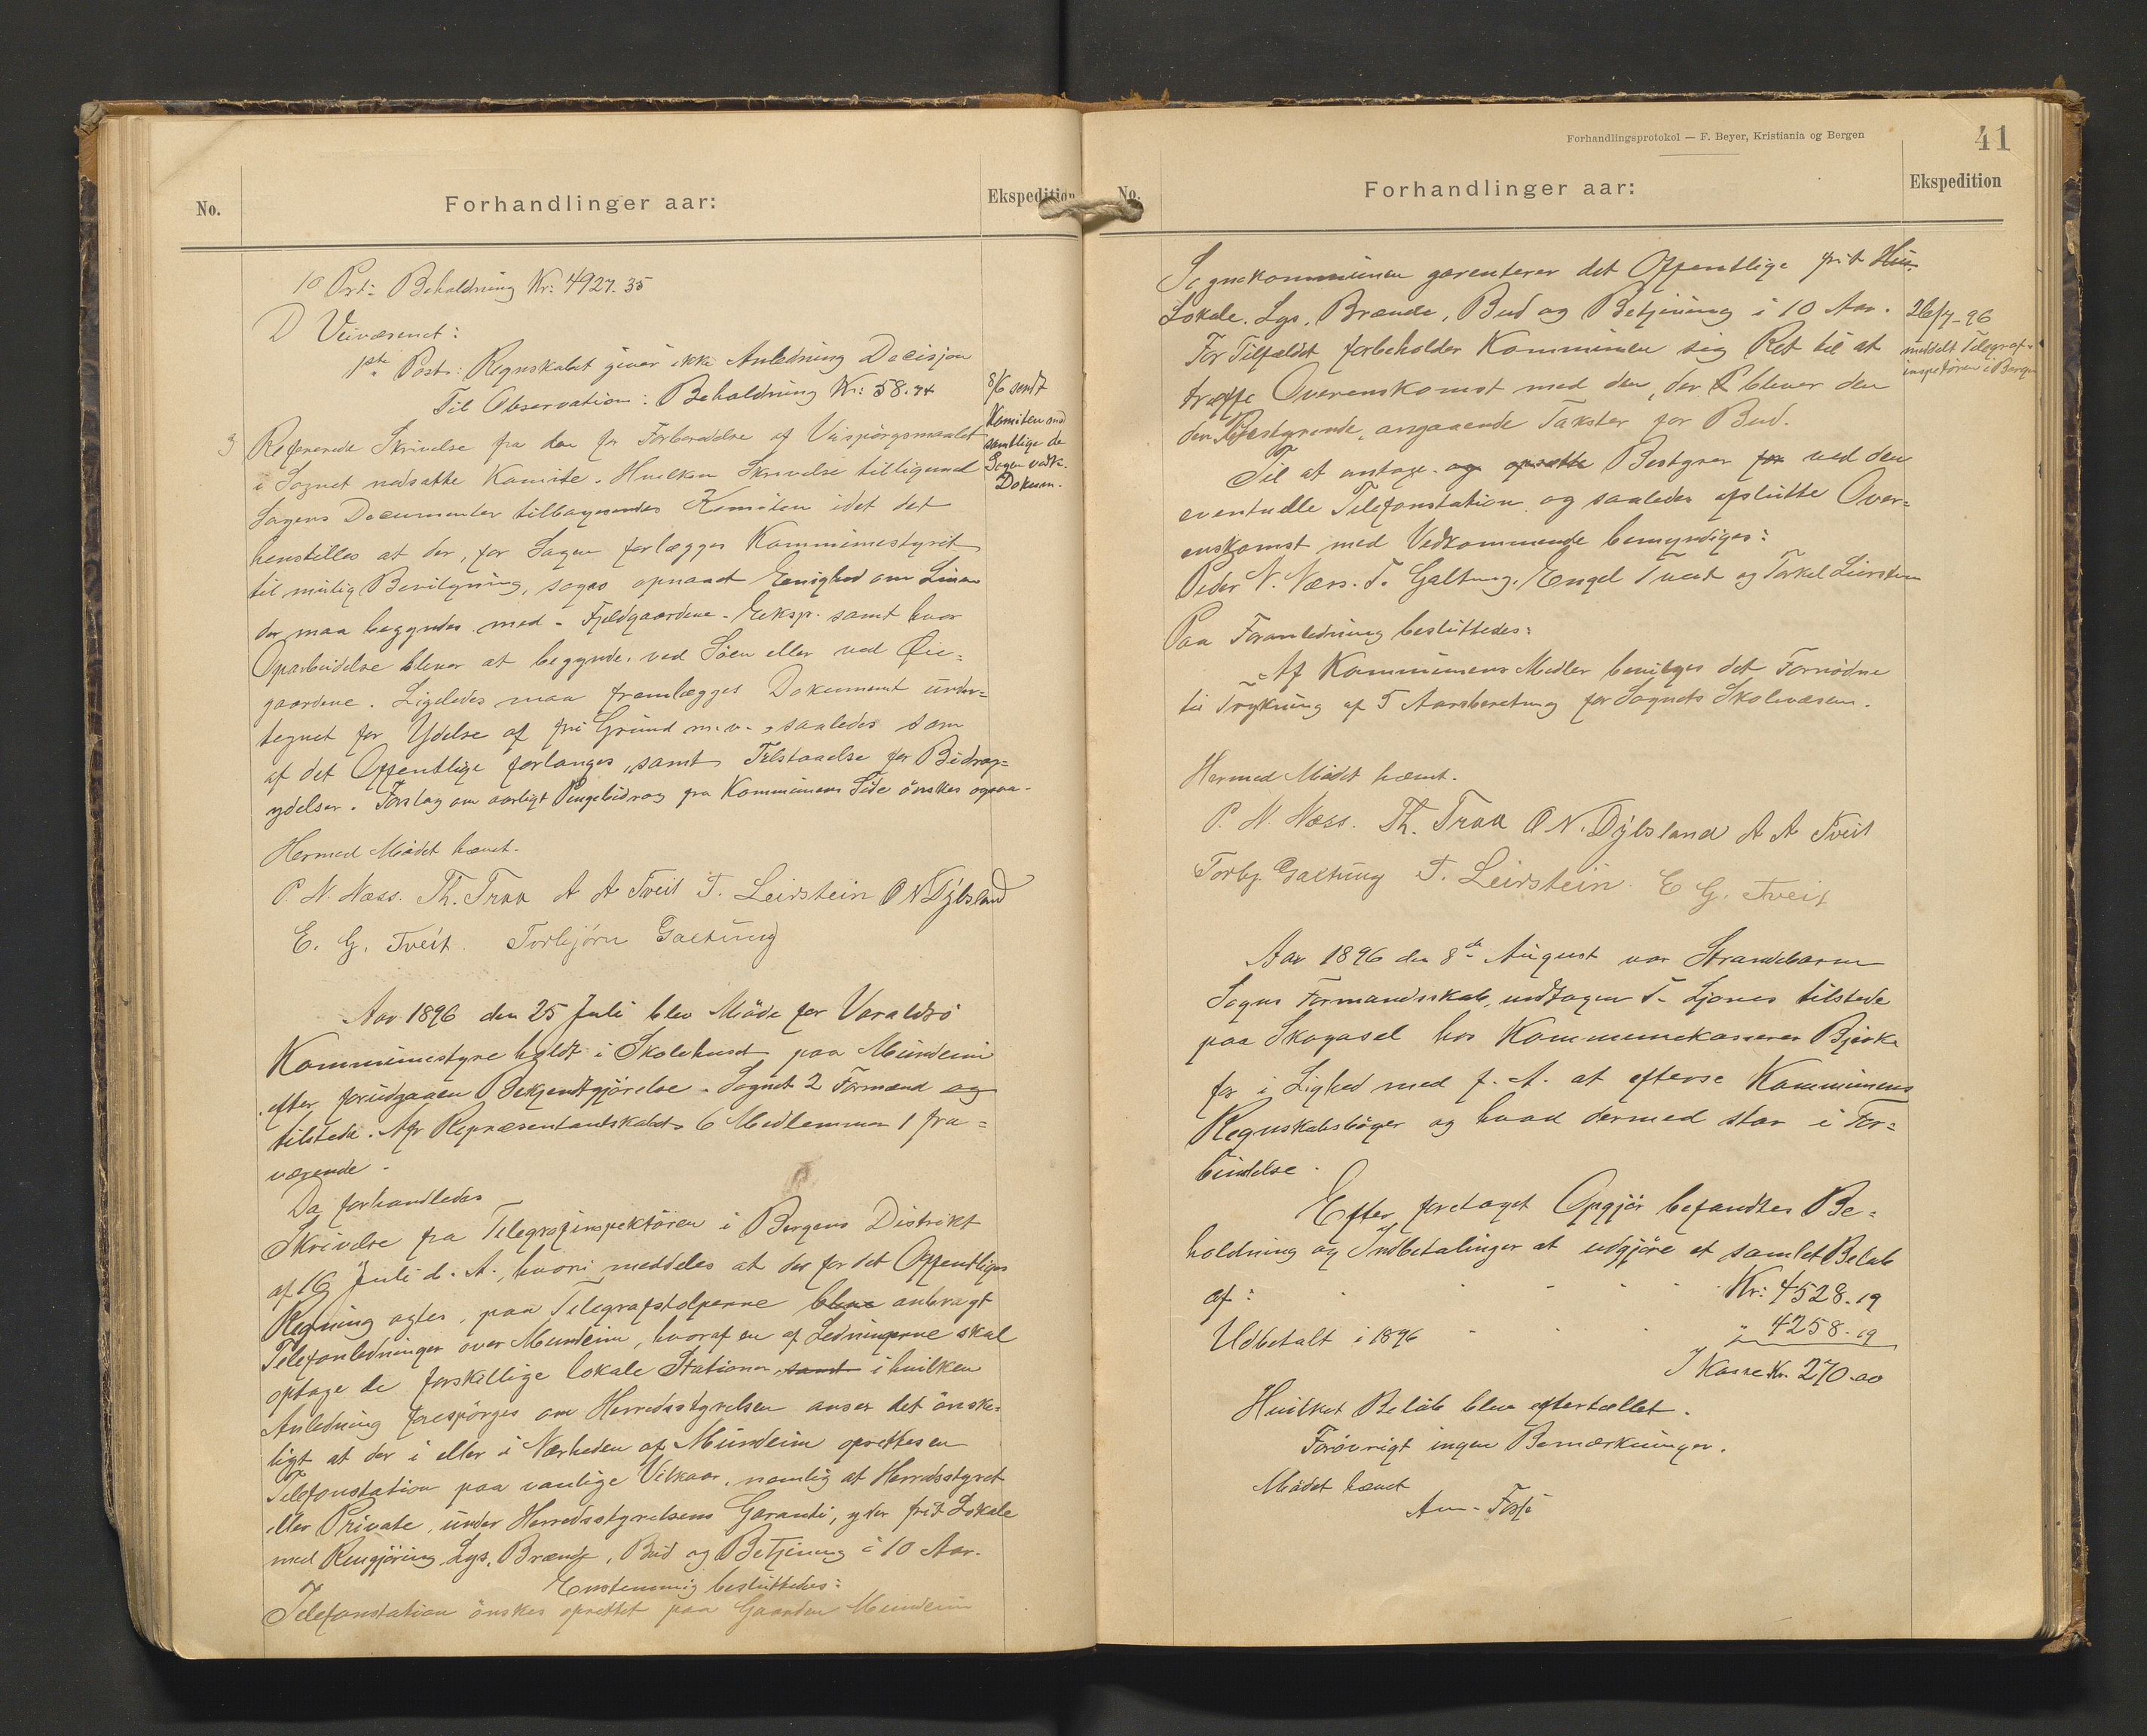 No.
Forhandlinger aar:
Ekspedition
10 Post: Beholdning Kr: 4927.35
D Veivæsenet:
1ste Post: Regnskabet giver ikke Anledning Decisjon
Til Observation: Beholdning Kr: 58.74
3 Refererede Skrivelse fra den for Forberedelse af Veispörgsmaalet
i Sognet nedsatte Komite. Hvilken Skrivelse tilligemed
Sagens Documenter tilbagesendes Komiten idet det
henstilles at der, før Sagen forlægges Kommunestyret
til mulig Bevilgning, søges opnaaet Enighed om Linien
der maa begyndes med - Fjeldgaardene - Eeksp. samt hvor
Oparbeidelse bliver at begynde, ved Söen eller ved Öie-
gaardene. Ligeledes maa fremlægges Dokument under-
tegnet for Ydelse af fri Grund m.v., saaledes som
af det Offentlige forlanges, samt Tilstaaelse for Bidrags-
ydelser. Forslag om aarligt Pengebidrag fra Kommunens Side önskes ogsaa.
8/6 sendt
Komiten med
samtlige de
Sagen vedk.
Dokum.
Hermed Mödet hævet.
P. N. Næss. Th. Traa A A Tveit T. Leirstein O N Dÿbsland
E. G. Tveit. Torbjörn Galtung
Aar 1896 den 25 Juli blev Möde for Varaldsö
Kommunestyre holdt i Skolehuset paa Mundeim
efter forudgaaen Bekjendtgjörelse. Sognets 2 Formænd og
tilstede. Af Repræsentantskabets 6 Medlemmer 1 fra-
værende.
Da forhandledes
Skrivelse fra Telegrafinspektören i Bergens Distrikt
af 16 Juli d. A., hvori meddeles at der for det Offentliges
Regning agtes, paa Telegrafstolperne bleve anbragt
Telefonledninger over Mundeim, hvoraf en af Ledningerne skal
optage de forskellige lokale Stationer, samt i hvilken
Anledning forespörges om Herredsstyrelsen anser det önske-
ligt at der i eller i Nærheden af Mundeim oprettes en
Telefonstation paa vanlige Vilkaar, nemlig at Herredsstyret
eller Private, under Herredsstyrelsens Garanti, yder frit Lokale
med Rengjöring, Lys, Brænde, Bud og Betjening i 10 Aar.
Enstemmig besluttedes:
Telefonstation önskes oprettet paa Gaarden Mundeim
Forhandlingsprotokol — F. Beyer, Kristiania og Bergen
41
No.
Forhandlinger aar:
Ekspedition
Sognekommunen garenterer det Offentlige frit Hus
Lokale, Lys, Brænde, Bud og Betjening i 10 Aar.
For Tilfældet forbeholder Kommunen sig Ret til at
træffe Overenskomst med den, der bliver den
den Bestyrende, angaaende Takster for Bud.
26/7-96
meddelt Telegraf-
inspektören i Bergen
Til at antage og oprette Bestyrer for ved den
eventuelle Telefonstation og saaledes afslutte Over-
enskomst med Vedkommende bemyndiges:
Peder N. Næss. T. Galtung, Engel Tveit og Torkel Leirstein
Paa Foranledning besluttedes:
Af Kommunens Midler bevilges det Fornödne
til Trykning af 5 Aarsberetning for Sognets Skolevæsen.
Hermed Mödet hævet.
P. N. Næss. Th. Traa O N. Dÿbsland A A Tveit
Torbj. Galtung T. Leirstein. E G. Tveit
Aar 1896 den 8de August var Strandebarm
Sogns Formandsskab, undtagen T. Ljones tilstede
paa Skogasel hos Kommunekasserer Bjerke
for i Lighed med f. A. at efterse Kommunens
Regnskabsböger og hvad dermed staar i For-
bindelse.
Efter foretaget Opgjör befandtes Be-
holdning og Indbetalinger at udgjöre et samlet Belöb
af: Kr: 4528.19
Udbetalt i 1896 " 4258.19
I Kasse Kr. 270.00
Hvilket Belöb blev eftertællet.
Forövrigt ingen Bemærkninger.
Mödet hævet